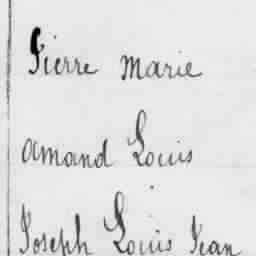 Pierre Marie
Amand Louis
Joseph Louis Jean